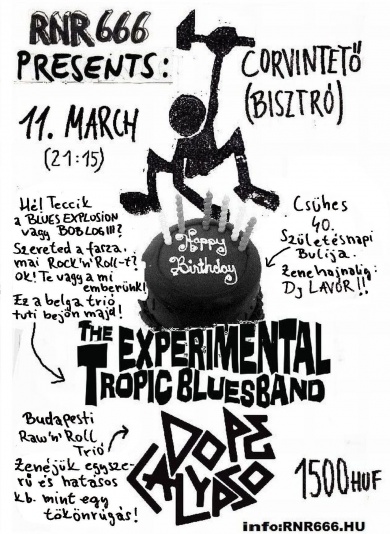 RNR 666
PRESENTS:
CORVINTETŐ
(BISZTRÓ)
11. MARCH
(21:15)
Hé! Teccik
a BLUES EXPLOSION
vagy BOB LOG III?
Szereted a fasza.
mai Rock'n'Roll-t?
Ok! Te vagy a mi
emberünk!
Ez a belga trió
tuti bejön majd!
Happy
Birthday
Csühes
40.
Születésnapi
Bulija.
Zene hajnalig:
Dj LAVÓR!!
THE EXPERIMENTAL
TROPIC BLUESBAND
Budapesti
Raw'n'Roll
Trió
Zenéjük egysze-
rű és hatásos
kb. mint egy
tökönrúgás!
DOPE
CALYPSO
1500 HUF
info:RNR666.HU